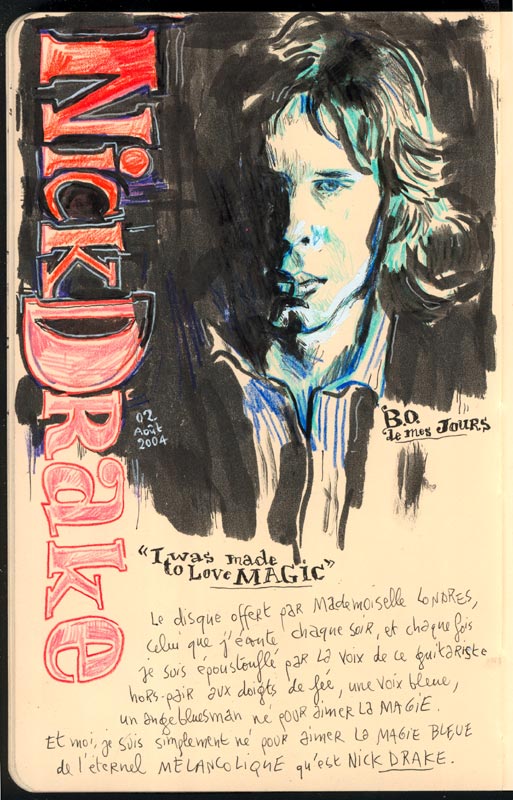 Nick Drake
02
Août
2004
B.O.
de mes JOURS
"I was made
to Love MAGIC"
Le disque offert par Mademoiselle LONDRES,
celui que j'écoute chaque soir, et chaque fois
je suis époustouflé par la voix de ce guitariste
hors-pair aux doigts de fée, une voix bleue,
un ange bluesman né pour aimer LA MAGIE.
Et moi, je suis simplement né pour aimer la MAGIE BLEUE
de l'éternel MÉLANCOLIQUE qu'est NICK DRAKE.